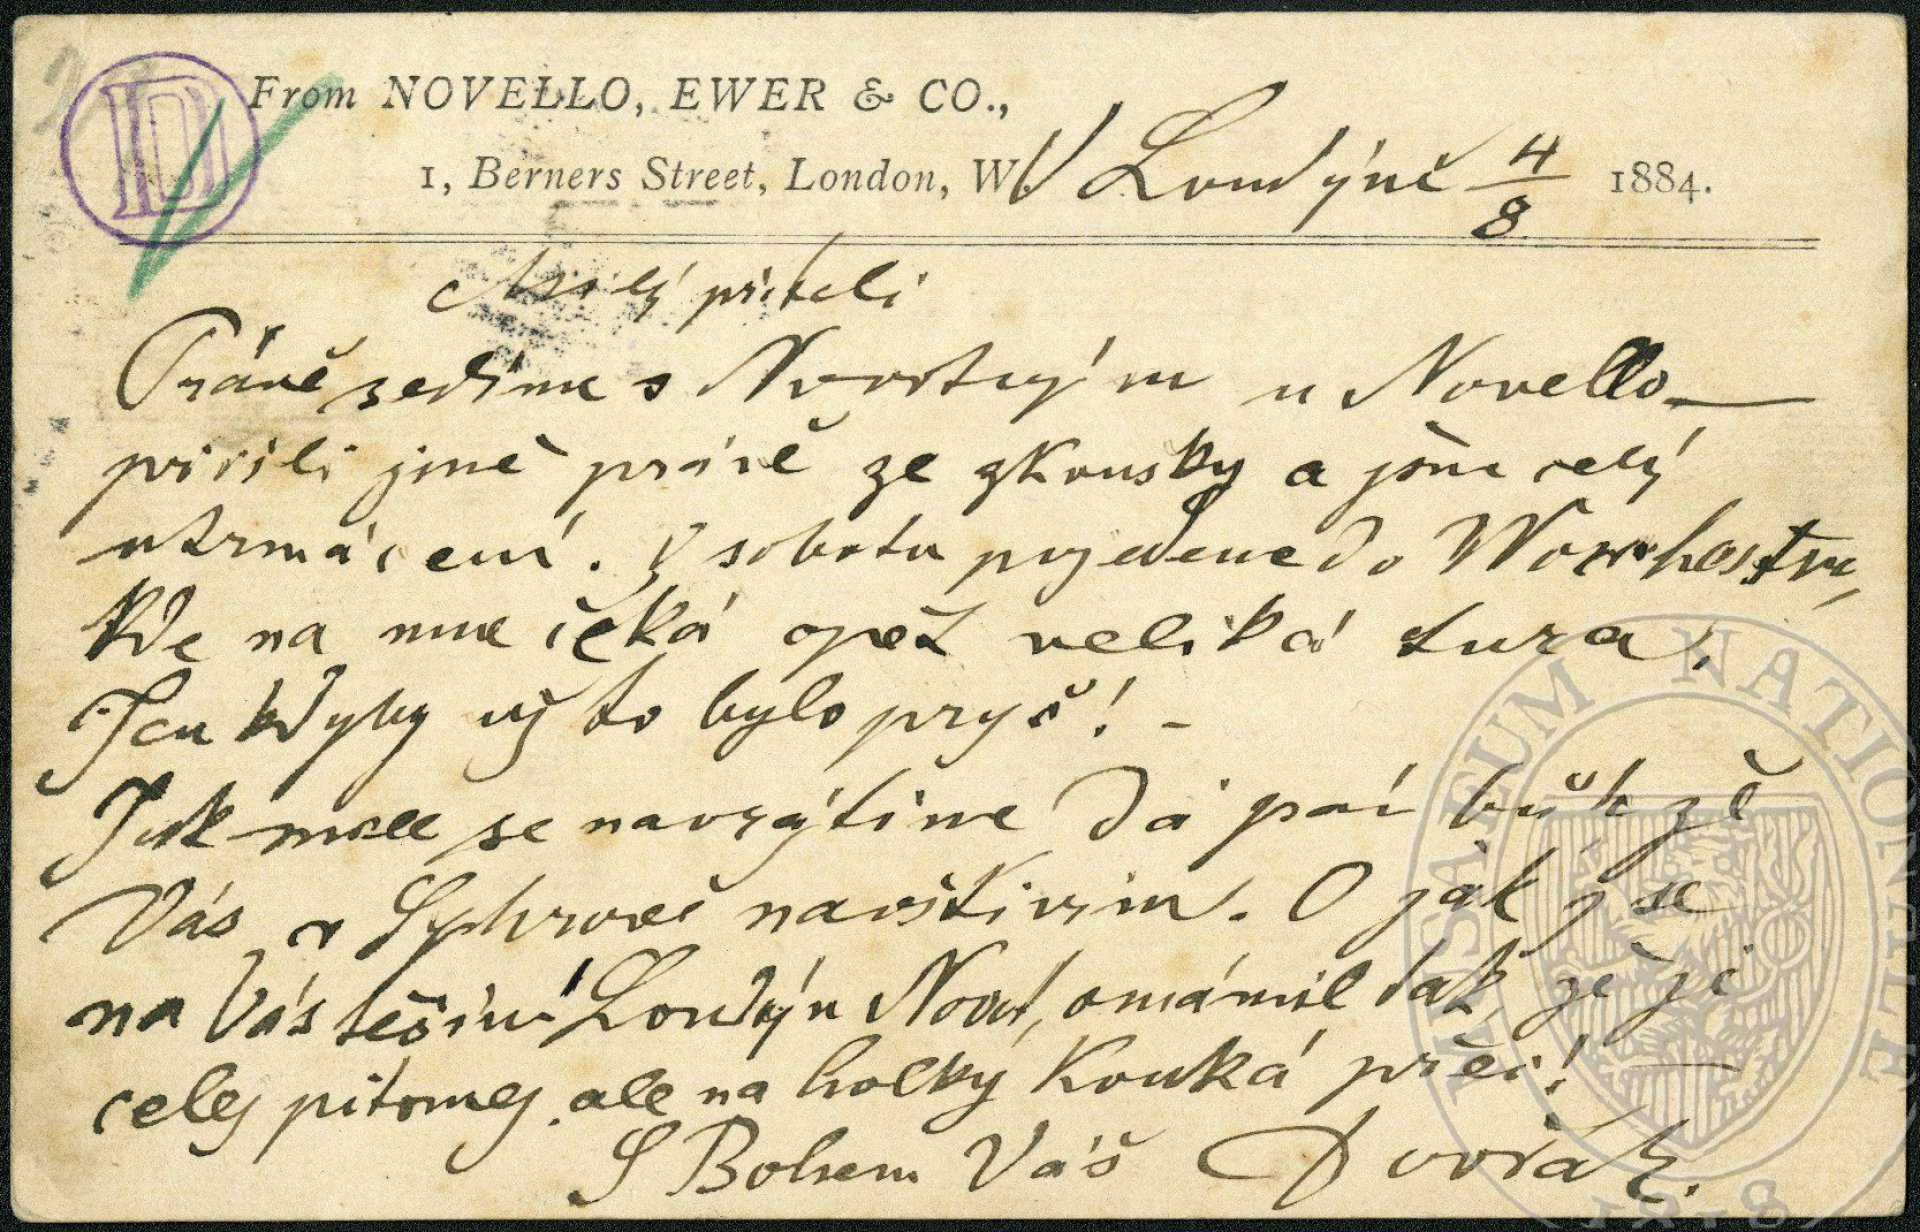 D
From NOVELLO, EWER & CO.,
1, Berners Street, London, W. V Londýně 4/8 1884.
Milý příteli
Právě sedíme s Novotným u Novello
přišli jsme právě ze zkousky a jsme celý
utrmácení. V sobotu pojedeme do Worchestru,
kde na mne čeká opět veliká tura.
Jen kdyby už to bylo pryč! –
Jak se navrátíme dá pán bůh že
Vás v Sychrově navštívím. O jak se
na Vás těším! Londýn Novot. omámil tak, že je
celej pitomej, ale na holky kouká přeci!
S Bohem Váš Dvořák.
MUSAEUM NATIONALE
1818